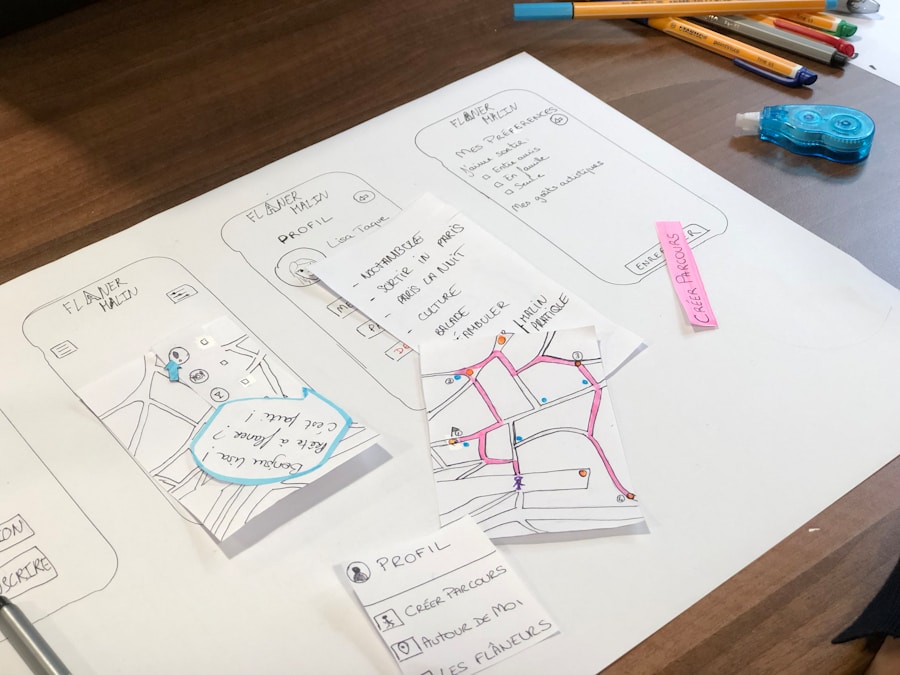 FLÂNER
MALIN
MES PRÉFÉRENCES
J'aime sortir:
Entre amis
En famille
Seule
Mes goûts artistiques
CRÉER PARCOURS
FLÂNER
MALIN
PROFIL
Lisa Taque
- NOCTAMBULE
- SORTIR IN PARIS
- PARIS LA NUIT
- CULTURE
BALADE
MALIN
PRATIQUE
FLÂNER
MALIN
Bonjour Lisa!
Prête à flâner?
C'est parti!
PROFIL
CRÉER PARCOURS
AUTOUR DE MOI
LES FLÂNEURS